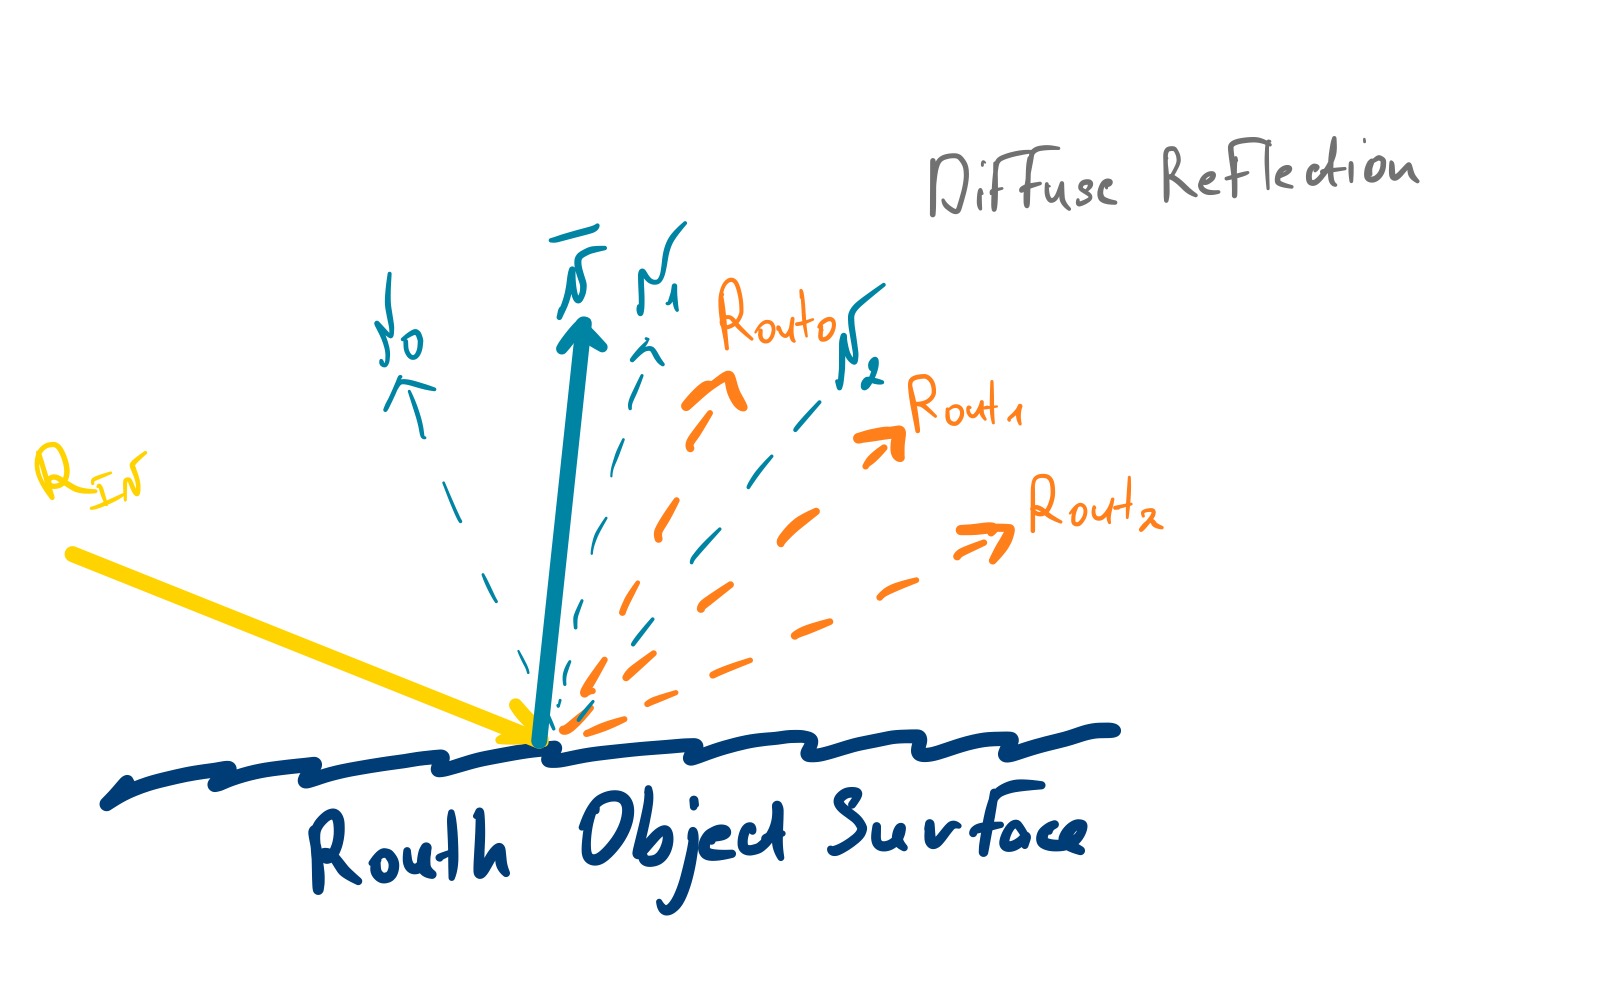 Diffuse Reflection
N̅
N1
N0
Rout0
N2
Rout1
RIN
Rout2
Routh Object Surface